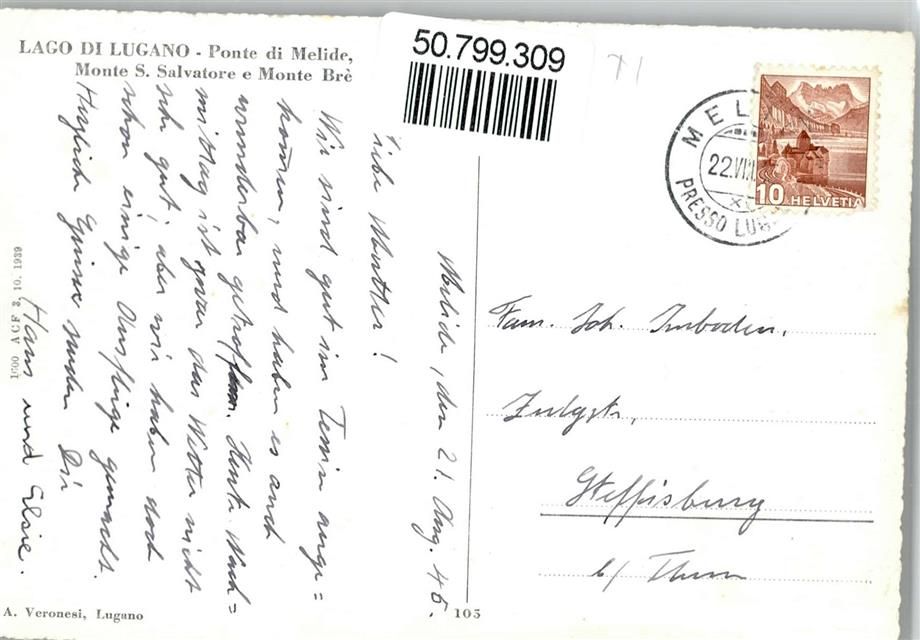 LAGO DI LUGANO - Ponte di Melide,
Monte S. Salvatore e Monte Brè
50.799.309
71
MEL
22.VIII
PRESSO LUG
10 HELVETIA
Melide, den 21. Aug. 46.
Liebe Mutter!
Wir sind gut im Tessin ange=
kommen, und haben es auch
wunderbar getroffen. Heute Nach=
mittag ist zwar das Wetter nicht
sehr gut, aber wir haben doch
schon einige Ausflüge gemacht.
Herzliche Grüsse senden Dir
Hans und Elsie.
Fam. Joh. Imboden,
Zulgstr,
Steffisburg
b/ Thun
1600 ACF 3. 10. 1939
A. Veronesi, Lugano
105